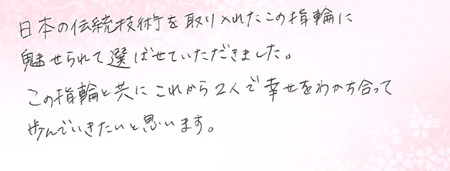 日本の伝統技術を取り入れたこの指輪に
魅せられて選ばせていただきました。
この指輪と共にこれから2人で幸せをわかち合って
歩んでいきたいと思います。